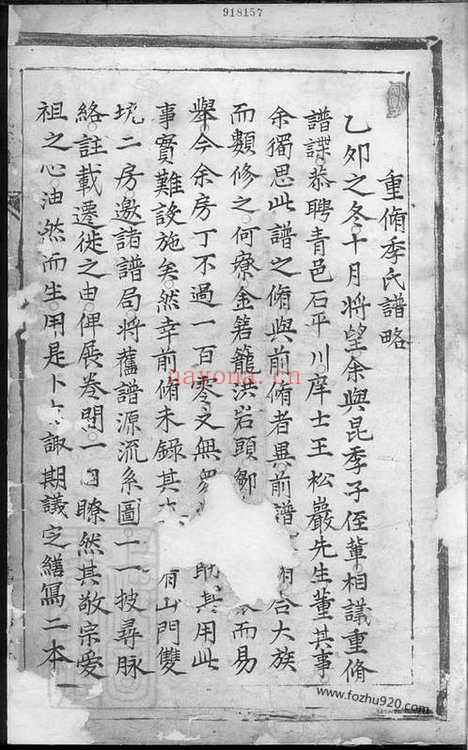 918157
重脩季氏譜略
乙夘之冬十月將望余與昆季子侄軰相議重脩
譜諜恭聘青邑石平川庠士王松巖先生董其事
余獨思此譜之脩與前脩者異前譜 合大族
而類修之何寮金箬籠洪岩頭鄒 而易
舉今余房丁不過一百零又無 其用此
事實難設施矣然幸前脩未録其 有山門雙
坑二房邀諸譜局將舊譜源流系圖一一披尋脉
絡註載遷徙之由俾展卷閱一目瞭然其敬宗愛
祖之心油然而生用是卜 諏期議定繕寫二本一
nayona.cn
www.fozhu920.com